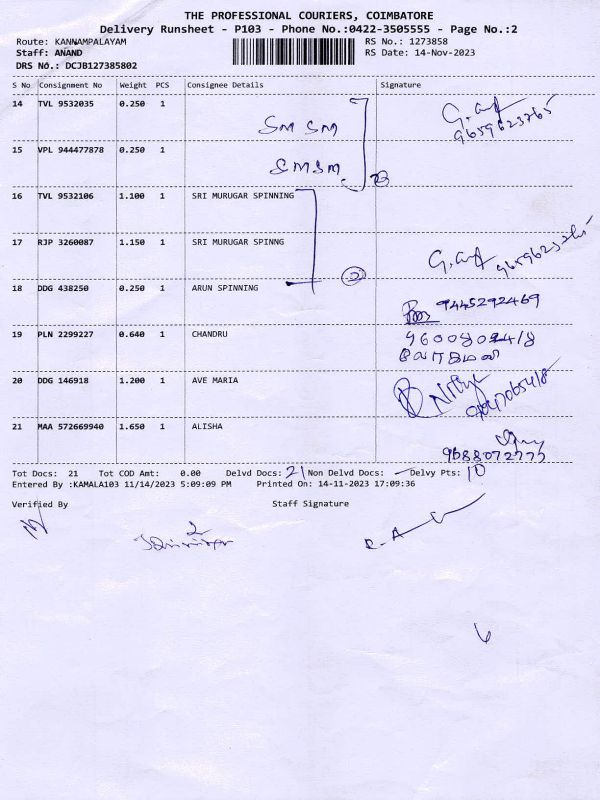 THE PROFESSIONAL COURIERS, COIMBATORE
Delivery Runsheet - P103 - Phone No.:0422-3505555 - Page No.:2
Route: KANNAMPALAYAM RS No.: 1273858
Staff: ANAND RS Date: 14-Nov-2023
DRS No.: DCJB127385802
S No Consignment No Weight PCS Consignee Details Signature
14 TVL 9532035 0.250 1
SM SM 9659623765
15 VPL 944477878 0.250 1
SMSM
16 TVL 9532106 1.100 1 SRI MURUGAR SPINNING
17 RJP 3260087 1.150 1 SRI MURUGAR SPINNG
2
18 DDG 438250 0.250 1 ARUN SPINNING
9445292469
19 PLN 2299227 0.640 1 CHANDRU
20 DDG 146918 1.200 1 AVE MARIA
21 MAA 572669940 1.650 1 ALISHA
9688072777
Tot Docs: 21 Tot COD Amt: 0.00 Delvd Docs: 21 Non Delvd Docs: - Delvy Pts: 10
Entered By :KAMALA103 11/14/2023 5:09:09 PM Printed On: 14-11-2023 17:09:36
Verified By Staff Signature